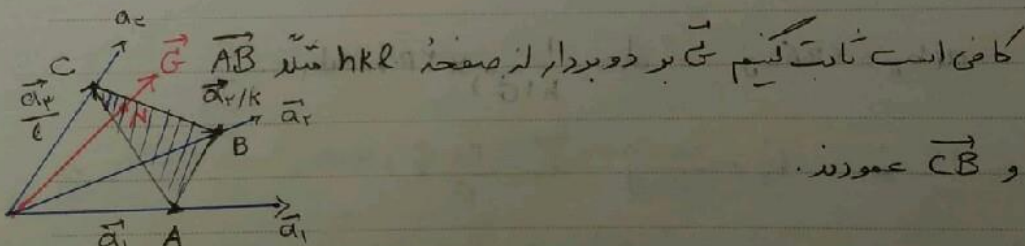 کافی است ثابت کنیم G⃗ بر دو بردار از صفحهٔ hkl مثلاً AB⃗
و CB⃗ عمودند.
C
G⃗
N
a⃗۳/l
a⃗۲/k
a⃗۲
B
a⃗۱
A
a⃗۱